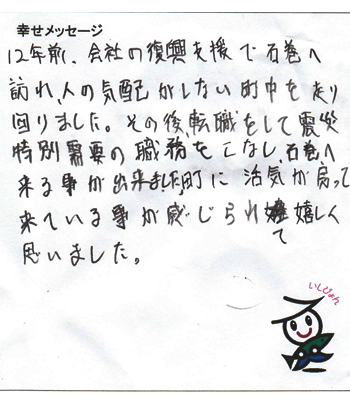 幸せメッセージ
12年前、会社の復興支援で石巻へ
訪れ、人の気配がしない町中を走り
回りました。その後、転職をして震災
特別需要の職務をこなし、石巻へ
来る事が出来ました。町に活気が戻って
来ている事が感じられて嬉しく
思いました。
いしぴょん